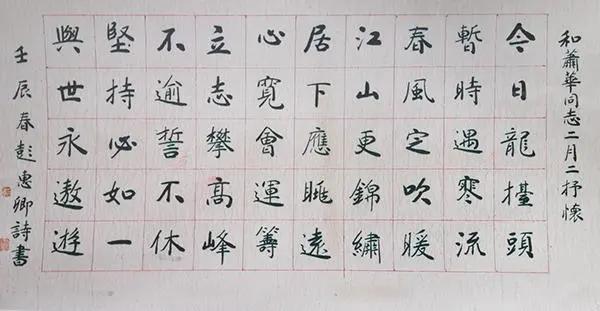 和蕭華同志二月二抒懷
今日龍擡頭
暫時遇寒流
春風定吹暖
江山更錦繡
居下應眺遠
心寬會運籌
立志攀高峰
不逾誓不休
堅持必如一
與世永遨遊
壬辰春彭惠卿詩書